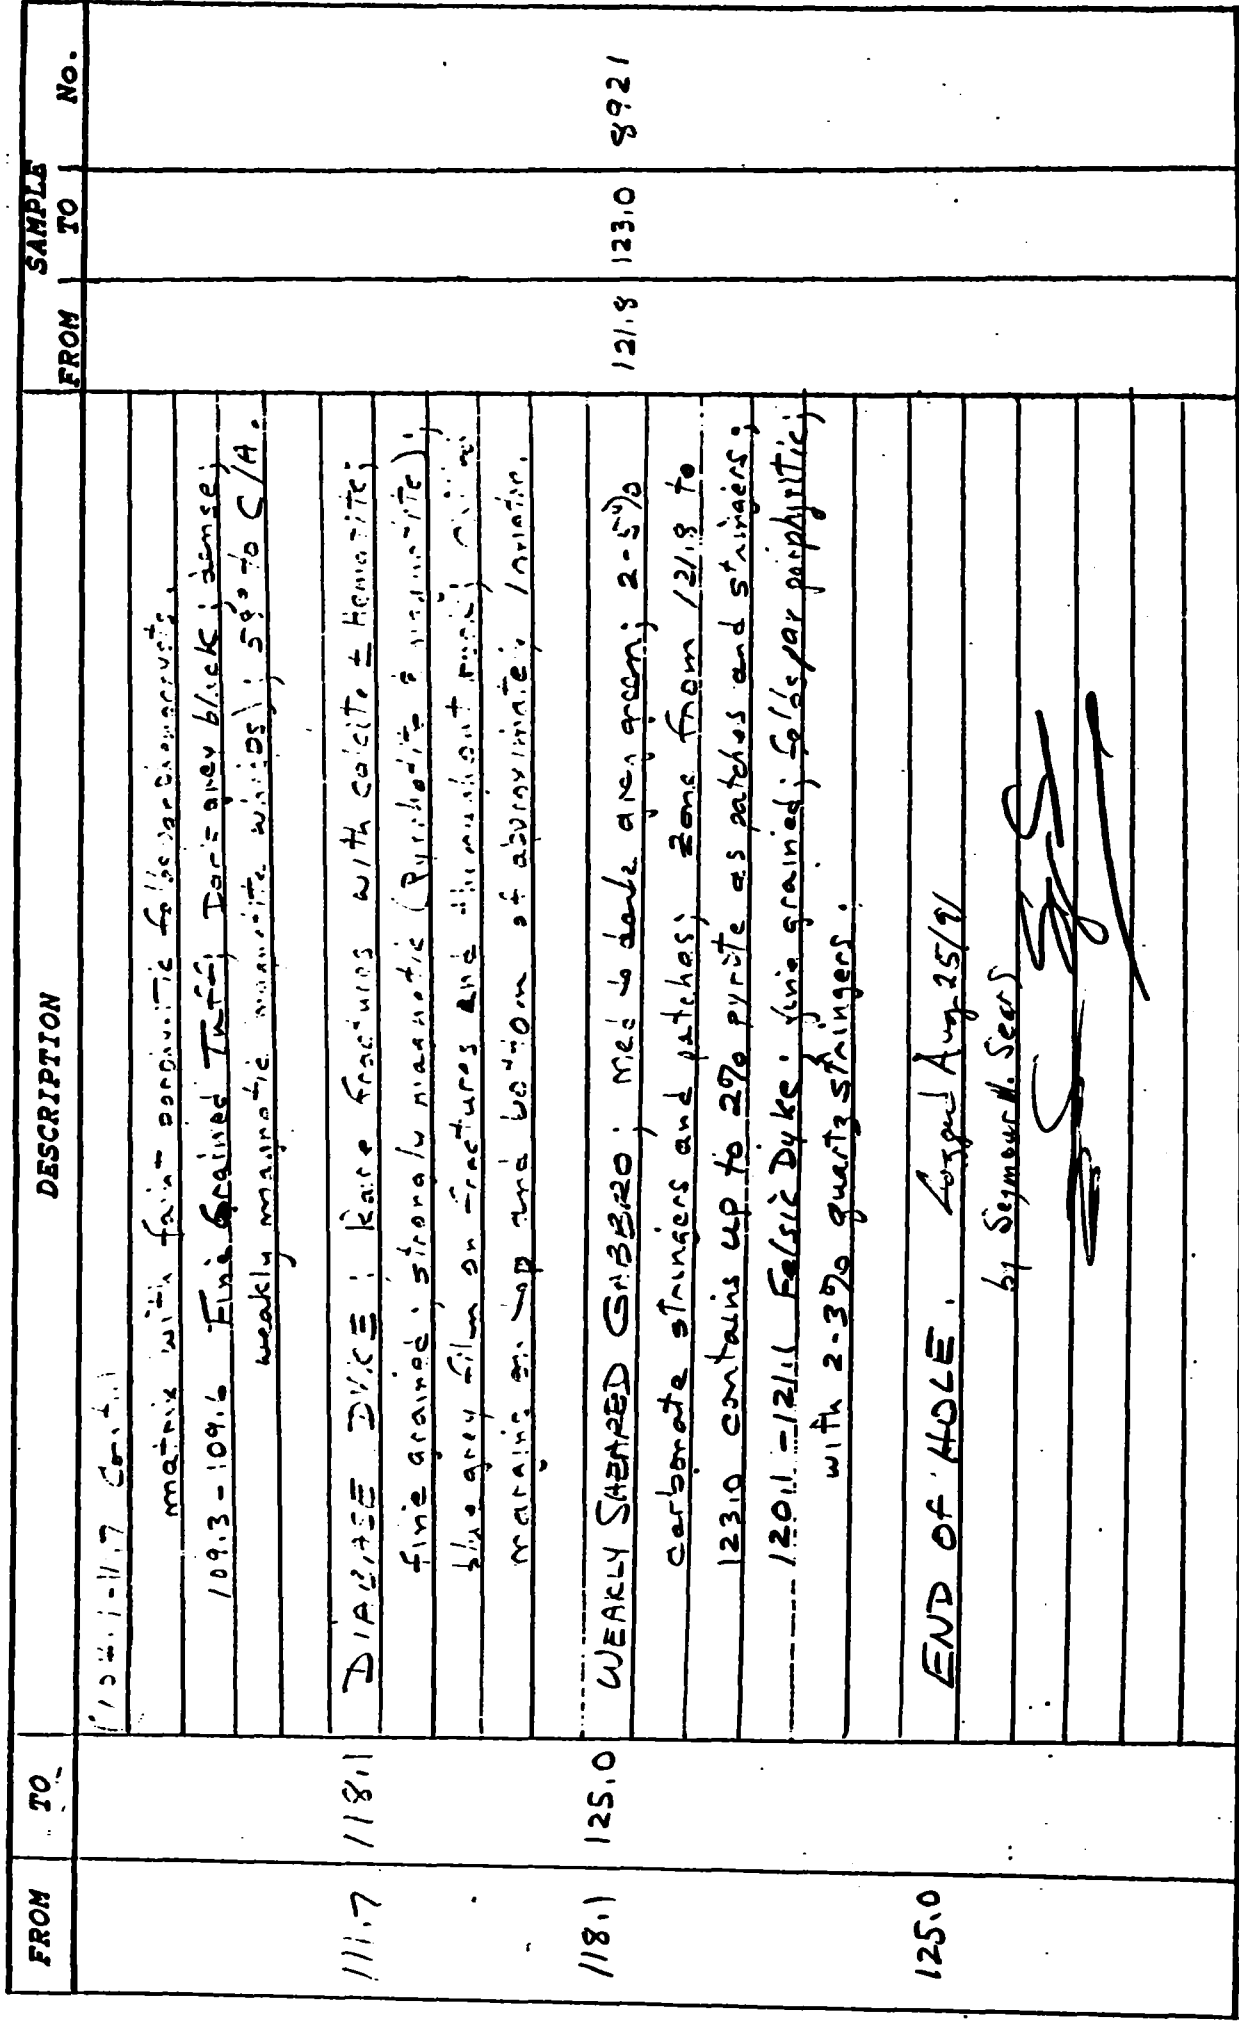 FROM TO DESCRIPTION SAMPLE
FROM TO No.
11.7 Cont.
matrix with faint porphyritic
109.3 - 109.6 Fine Grained Tuff; Dark grey black; dense;
weakly magnetic magnetite 58° to C/A.
111.7 118.1 DIABASE DYKE; Rare fractures with calcite ± Hematite;
fine grained; strongly magnetic (Pyrrhotite ± magnetite);
blue grey film on fractures and throughout
margins on top and bottom of approximate location.
118.1 125.0 WEAKLY SHEARED GABBRO; med to dark grey green; 2-5% 121.8 123.0 8921
carbonate stringers and patches; zone from 121.8 to
123.0 contains up to 2% pyrite as patches and stringers.
120.1 - 121.1 Felsic Dyke. fine grained; felspar porphyritic;
with 2-3% quartz stringers.
125.0 END OF HOLE. Logged Aug 25/91
by Seymour M. Sears